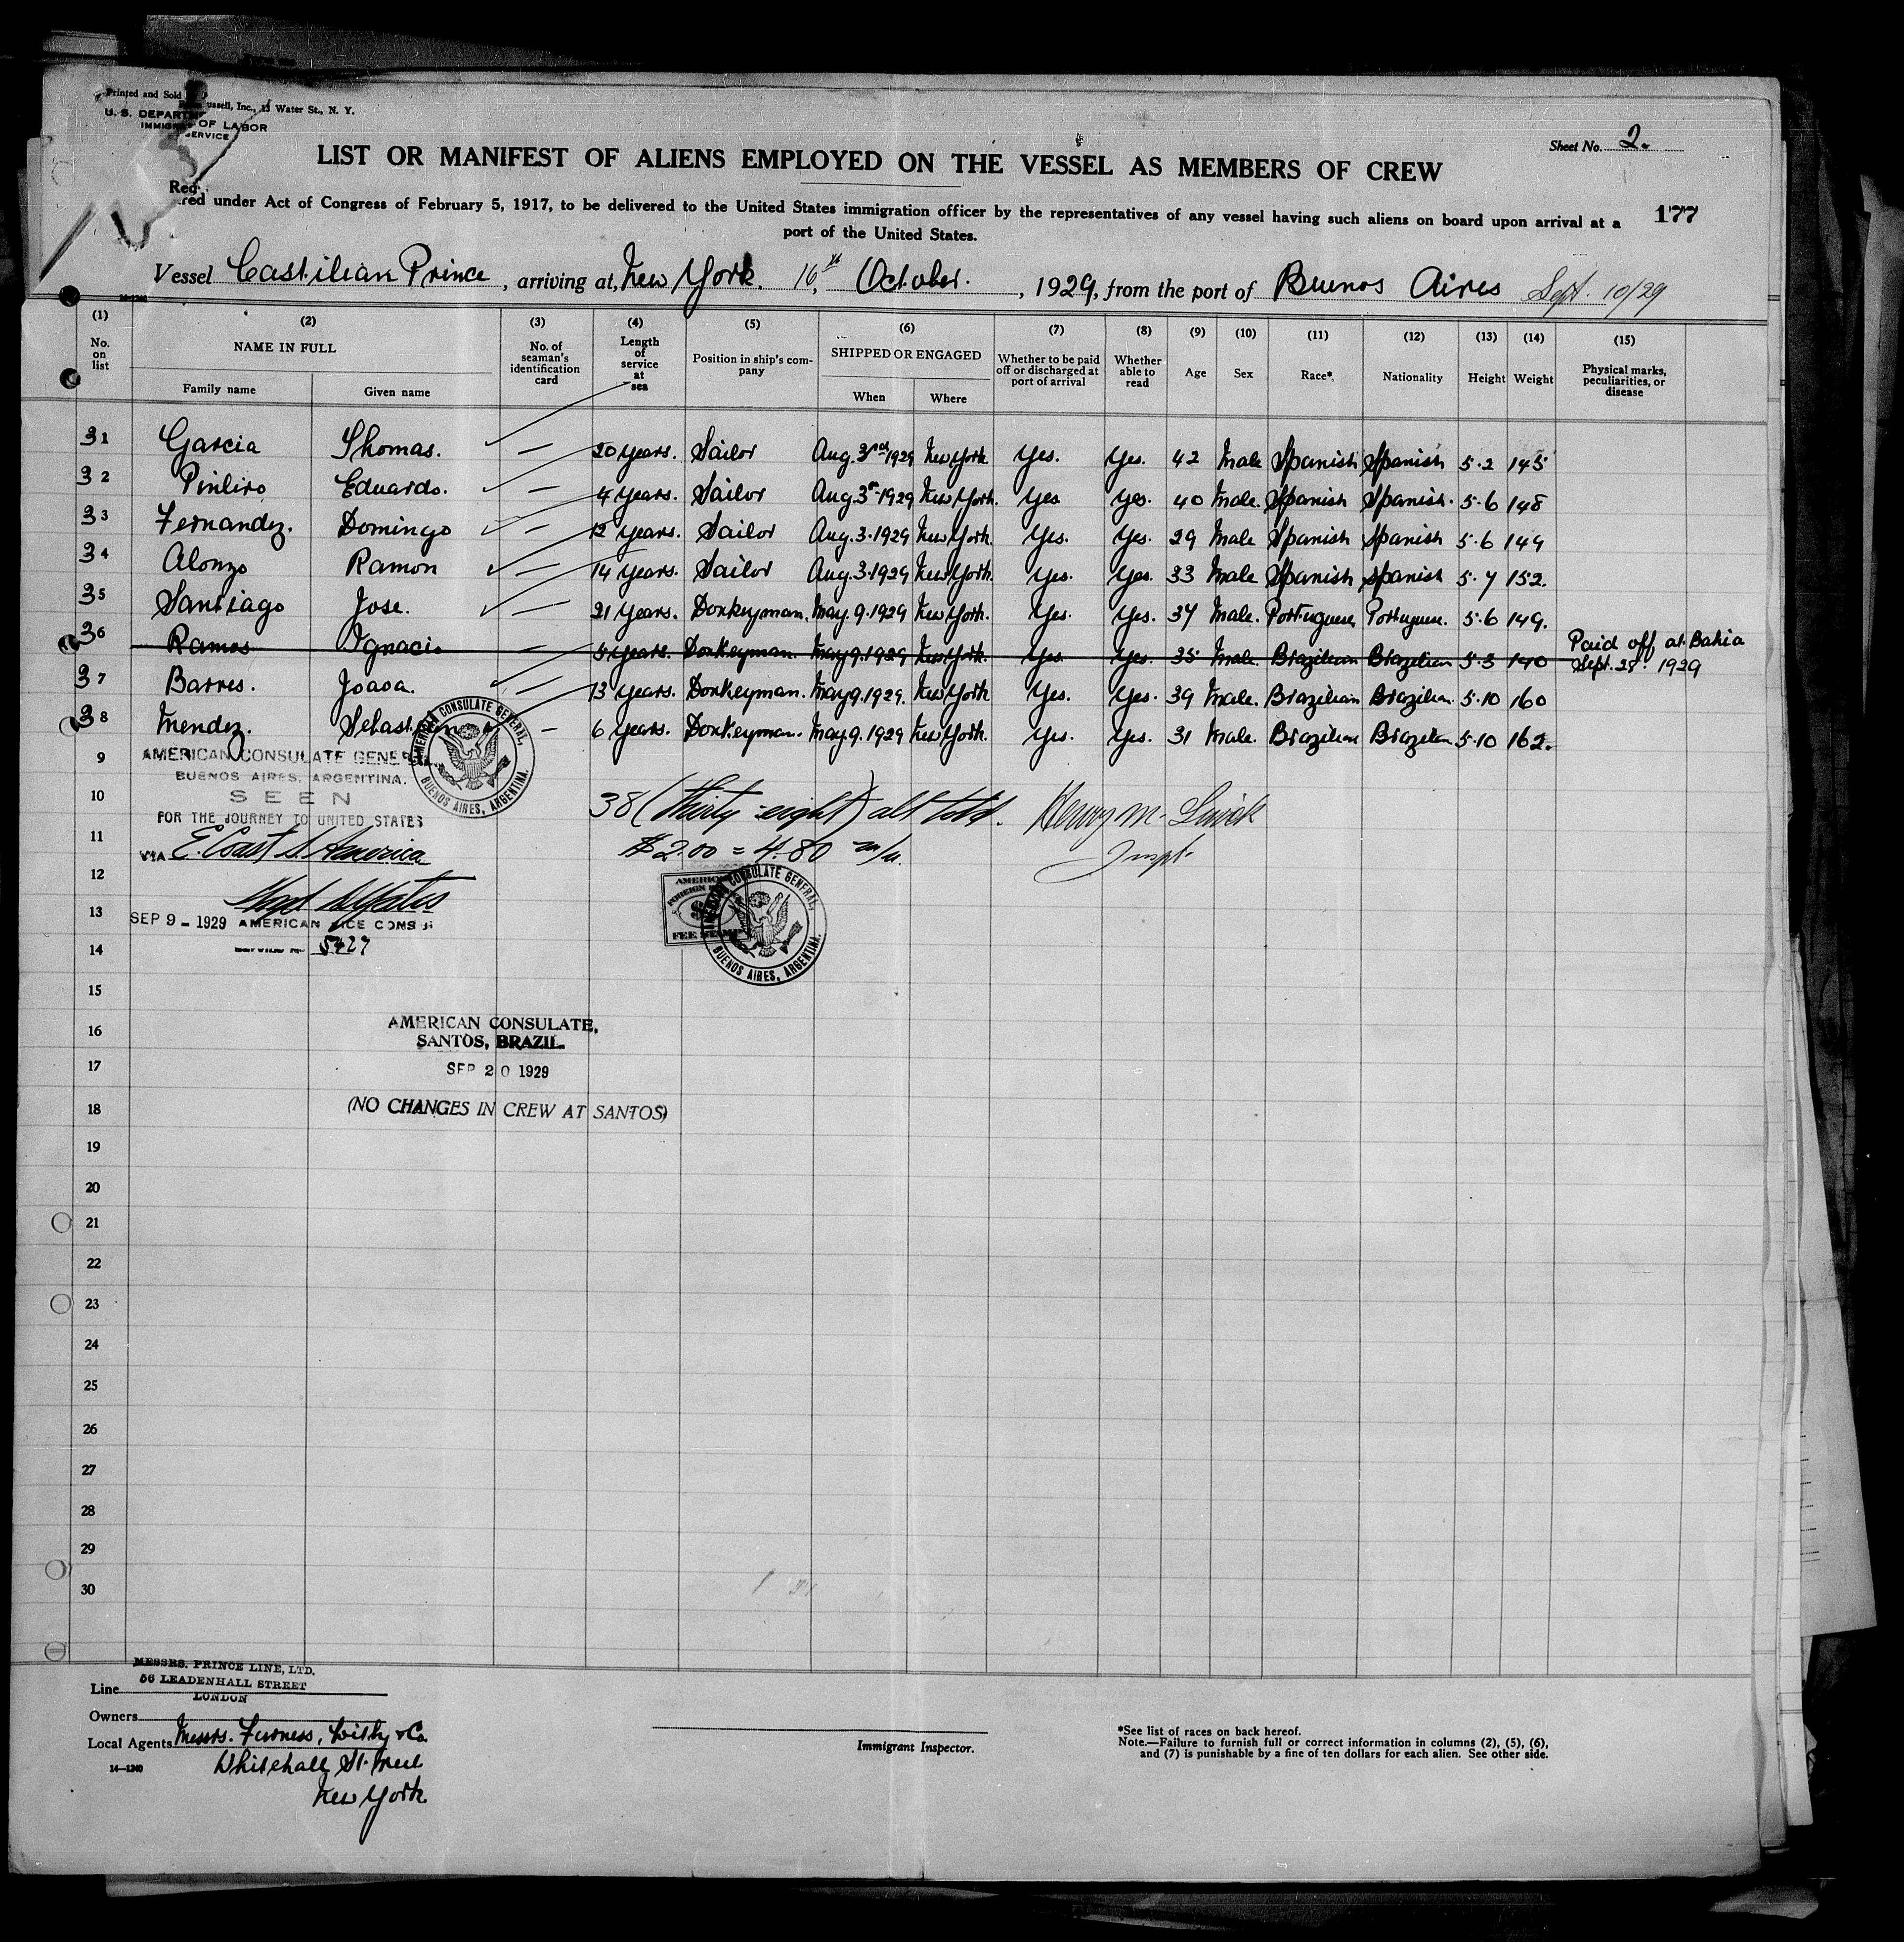 Printed and Sold
ussell, Inc., 13 Water St., N. Y.
U. S. DEPARTM OF LABOR
IMMIGRA SERVICE
Sheet No. 2.
LIST OR MANIFEST OF ALIENS EMPLOYED ON THE VESSEL AS MEMBERS OF CREW
177
Req
red under Act of Congress of February 5, 1917, to be delivered to the United States immigration officer by the representatives of any vessel having such aliens on board upon arrival at a
port of the United States.
Vessel Castilian Prince, arriving at, New York. 16th, October., 1929, from the port of Buenos Aires Sept. 10/29
14-1240
(1) (2) (3) (4) (5) (6) (7) (8) (9) (10) (11) (12) (13) (14) (15)
No. on list NAME IN FULL Family name Given name No. of seaman's identification card Length of service at sea Position in ship's company SHIPPED OR ENGAGED When Where Whether to be paid off or discharged at port of arrival Whether able to read Age Sex Race* Nationality Height Weight Physical marks, peculiarities, or disease
31 Garcia Thomas. — 20 years. Sailor Aug. 3rd 1929 New York Yes. Yes. 42 Male Spanish Spanish 5.2 145
32 Pinliro Eduardo. — 4 years. Sailor Aug 3rd 1929 New York. Yes Yes. 40 Male. Spanish Spanish. 5.6 148
33 Fernandez. Domingo — 12 years. Sailor Aug. 3. 1929 New York. Yes. Yes. 29 Male Spanish Spanish 5.6 149
34 Alonzo Ramon — 14 years. Sailor Aug. 3. 1929 New York. Yes. Yes. 33 Male Spanish Spanish 5.7 152.
35 Santiago Jose. — 21 years. Donkeyman. May. 9. 1929 New York. Yes. Yes. 37 Male. Portuguese Portuguese. 5.6 149.
36 Ramos Ignacio — 5 years. Donkeyman. May 9. 1929 New York. Yes Yes. 35 Male. Brazilian Brazilian 5.3 140 Paid off at Bahia
Sept. 28. 1929
37 Barres. Joaoa. — 13 years. Donkeyman. May 9. 1929. New York Yes. Yes. 39 Male. Brazilian Brazilian. 5.10 160
38 Mendez. Sebastian — 6 years. Donkeyman. May 9. 1929 New York. Yes. Yes. 31 Male. Brazilian Brazilian 5.10 162.
9 AMERICAN CONSULATE GENERAL
BUENOS AIRES, ARGENTINA.
AMERICAN CONSULATE GENERAL, BUENOS AIRES, ARGENTINA.
10 SEEN
38 (thirty-eight) all told. Henry M.
FOR THE JOURNEY TO UNITED STATES
11 VIA E. Coast S. America
$2.00 = 4.80 m/n.
12
AMERICAN FOREIGN SERVICE FEE STAMP
AMERICAN CONSULATE GENERAL, BUENOS AIRES, ARGENTINA.
13 SEP 9 - 1929 AMERICAN VICE CONSUL
5427
14
15
16 AMERICAN CONSULATE,
SANTOS, BRAZIL.
17 SEP 20 1929
18 (NO CHANGES IN CREW AT SANTOS)
19
20
21
22
23
24
25
26
27
28
29
30
MESSRS. PRINCE LINE, LTD.
56 LEADENHALL STREET
Line LONDON
Owners
Local Agents Messrs. Furness, Withy & Co.
Whitehall Street
New York.
14—1240
Immigrant Inspector.
*See list of races on back hereof.
Note.—Failure to furnish full or correct information in columns (2), (5), (6),
and (7) is punishable by a fine of ten dollars for each alien. See other side.